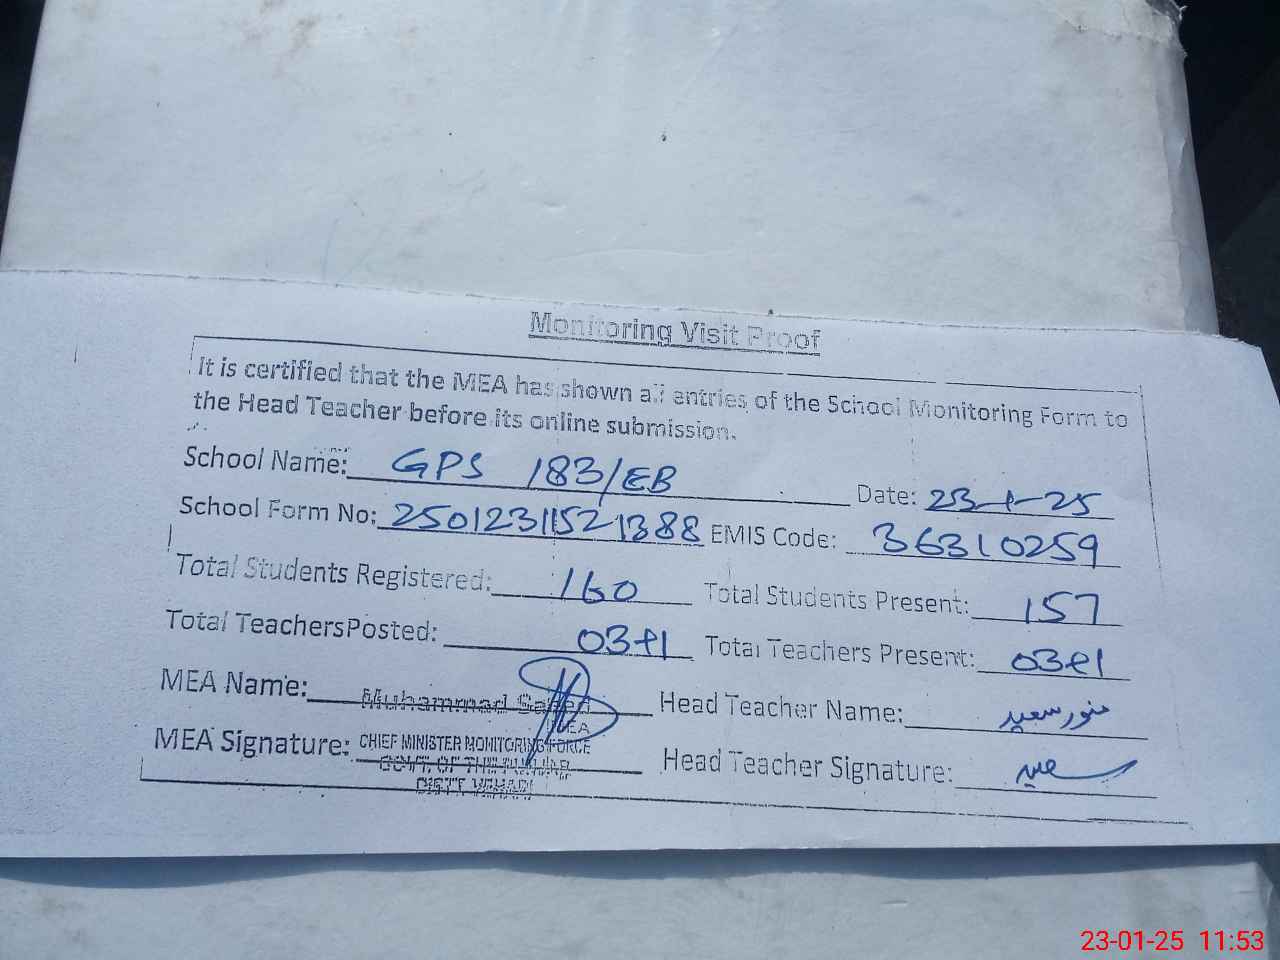 Monitoring Visit Proof
It is certified that the MEA has shown all entries of the School Monitoring Form to
the Head Teacher before its online submission.
School Name: GPS 183/EB Date: 23-1-25
School Form No: 25012311521388 EMIS Code: 36310259
Total Students Registered: 160 Total Students Present: 157
Total TeachersPosted: 03+1 Total Teachers Present: 03+1
MEA Name: Muhammad Saeed Head Teacher Name: منور سعید
MEA
MEA Signature: CHIEF MINISTER MONITORING FORCE Head Teacher Signature: سعید
GOVT. OF THE PUNJAB
DISTT. VEHARI
23-01-25 11:53